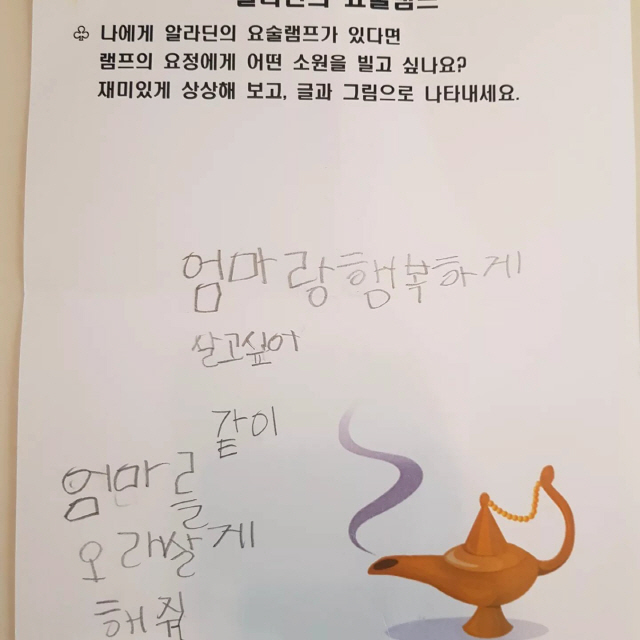 알라딘의 요술램프
♧ 나에게 알라딘의 요술램프가 있다면
램프의 요정에게 어떤 소원을 빌고 싶나요?
재미있게 상상해 보고, 글과 그림으로 나타내세요.
엄마랑행복하게
살고싶어
같이
엄마를
오래살게
해줘